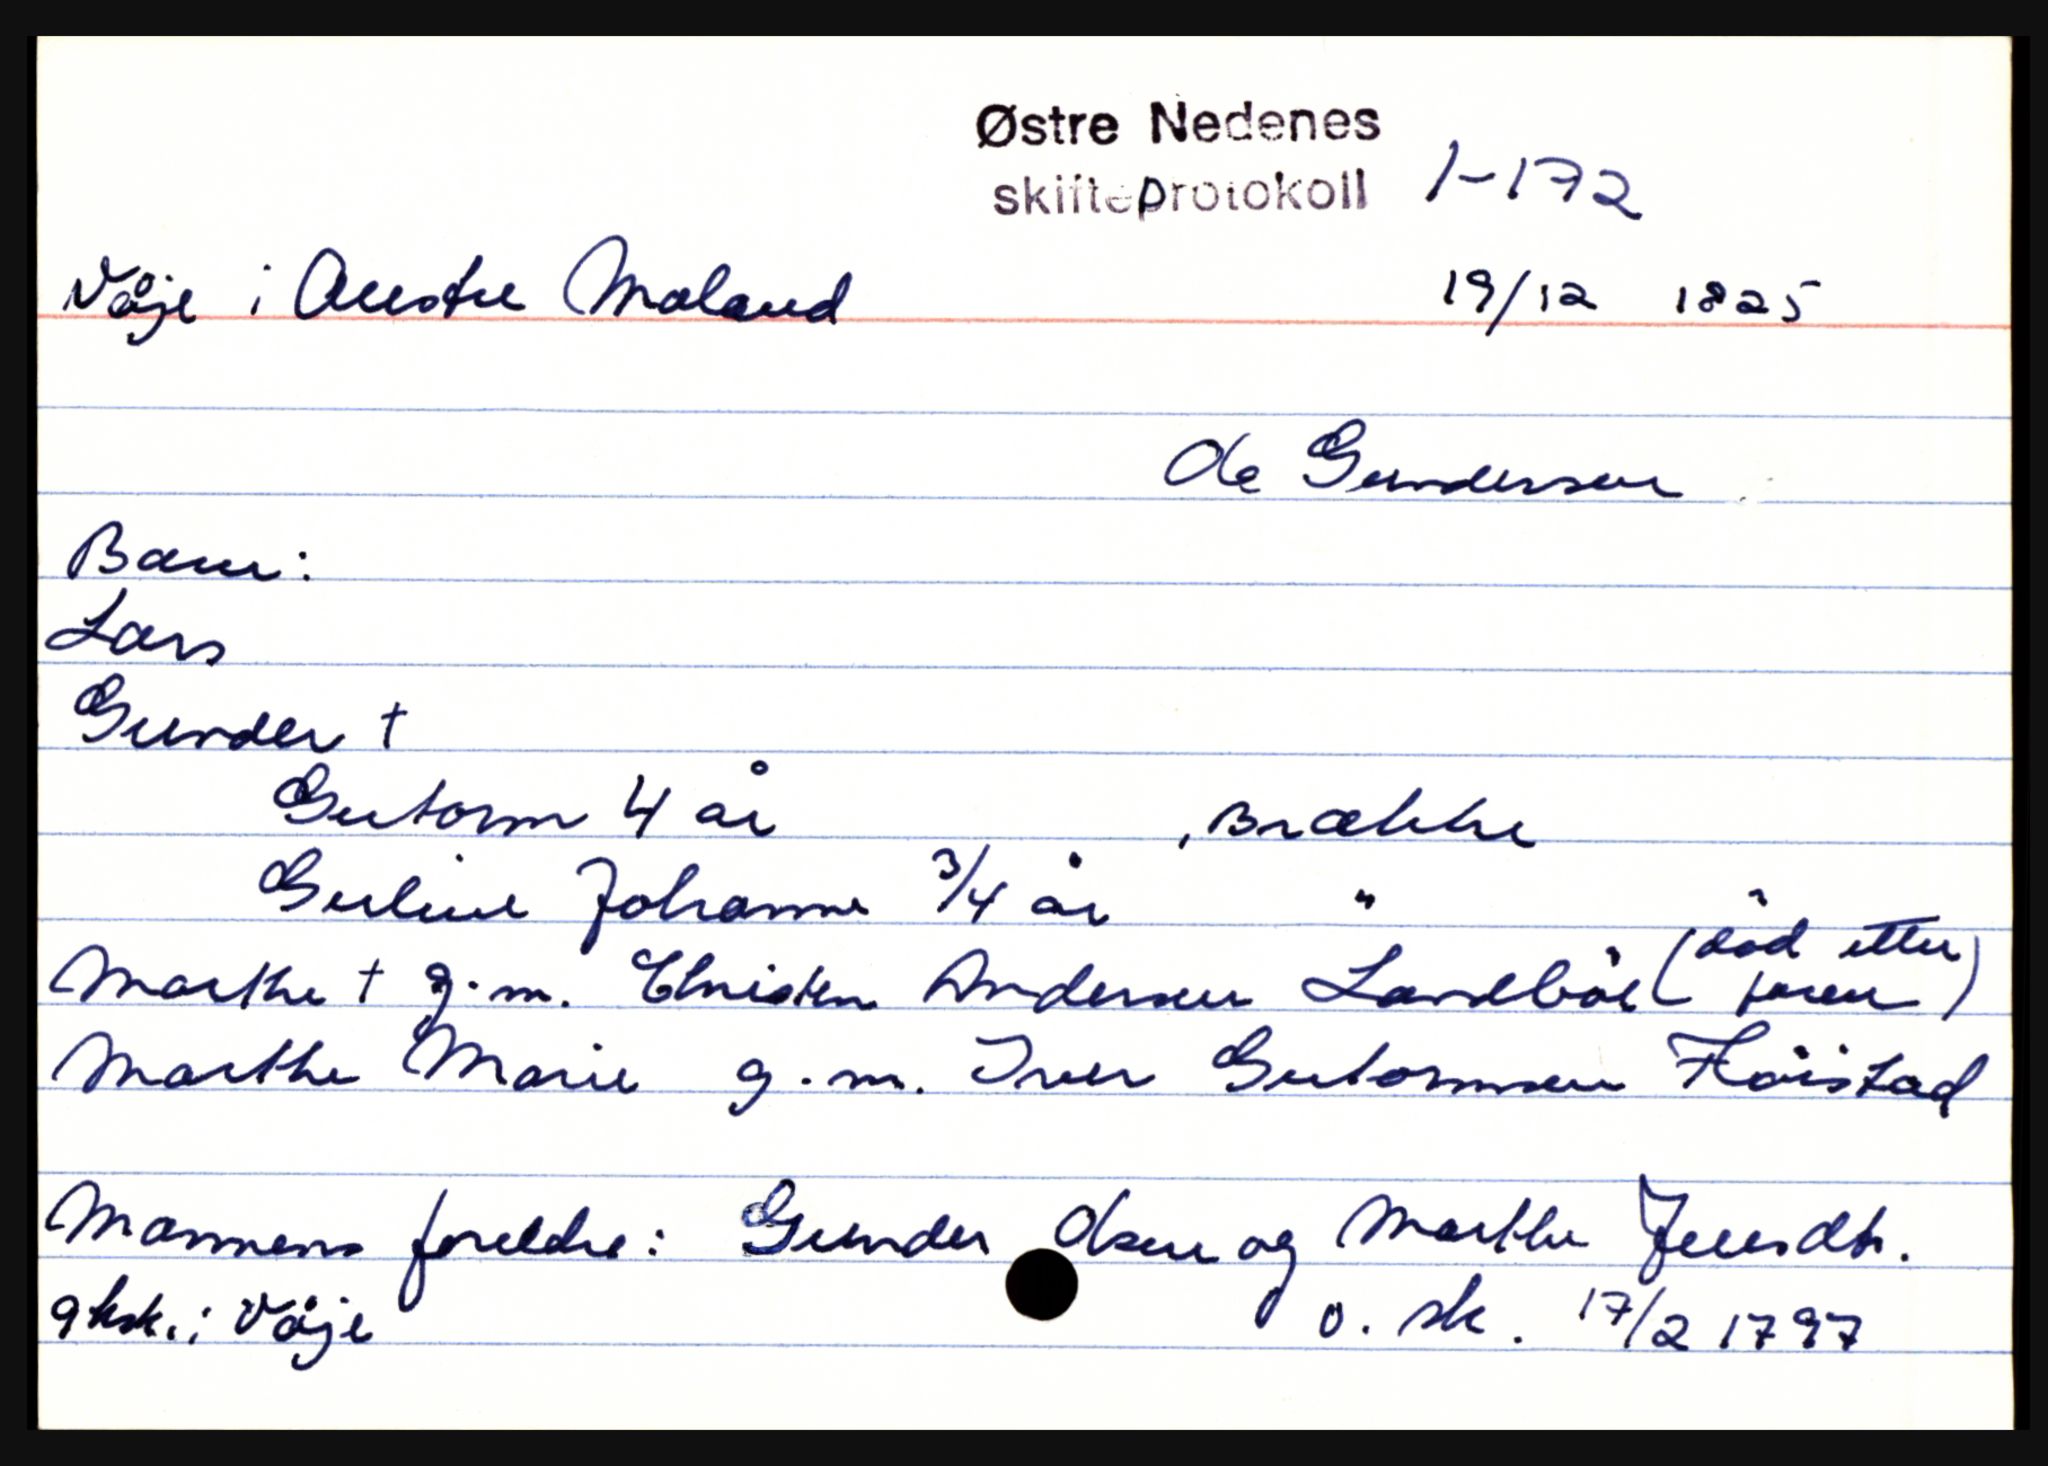 Østre Nedenes
skifteprotokoll 1-172
Våje i Austre Moland 19/12 1825
Ole Gundersen
Barn:
Lars
Gunder †
Gutorm 4 år , Brække
Guline Johanne 3/4 år "
Marthe † g.m. Christen Andersen Landbøe (død etter faren)
Marthe Marie g.m. Iver Gutormsen Høistad
Mannens foreldre: Gunder Olsen og Marthe Jensdtr.
gksk. i Våje o. sk. 17/2 1797